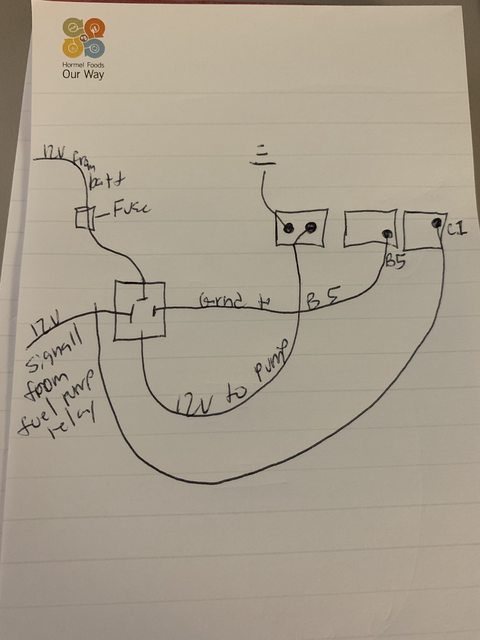 Hormel Foods
Our Way
12V from
batt
Fuse
12V
signall
from
fuel pump
relay
Grnd to B5
12V to pump
B5
C1